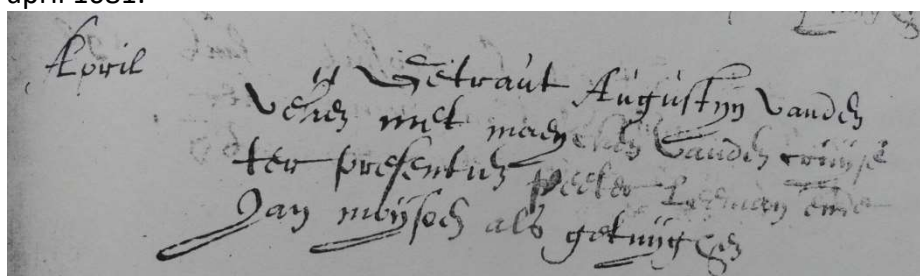 april 1681.
April
Getraut Augustijn vanden
Velde met mayken vanden cruijse
ter presentien Peeter Leeman ende
Jan moijsoen als getuijgen